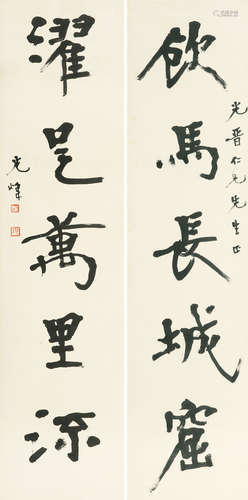 光晋仁兄先生正
飲馬長城窟
濯足萬里流
光煒